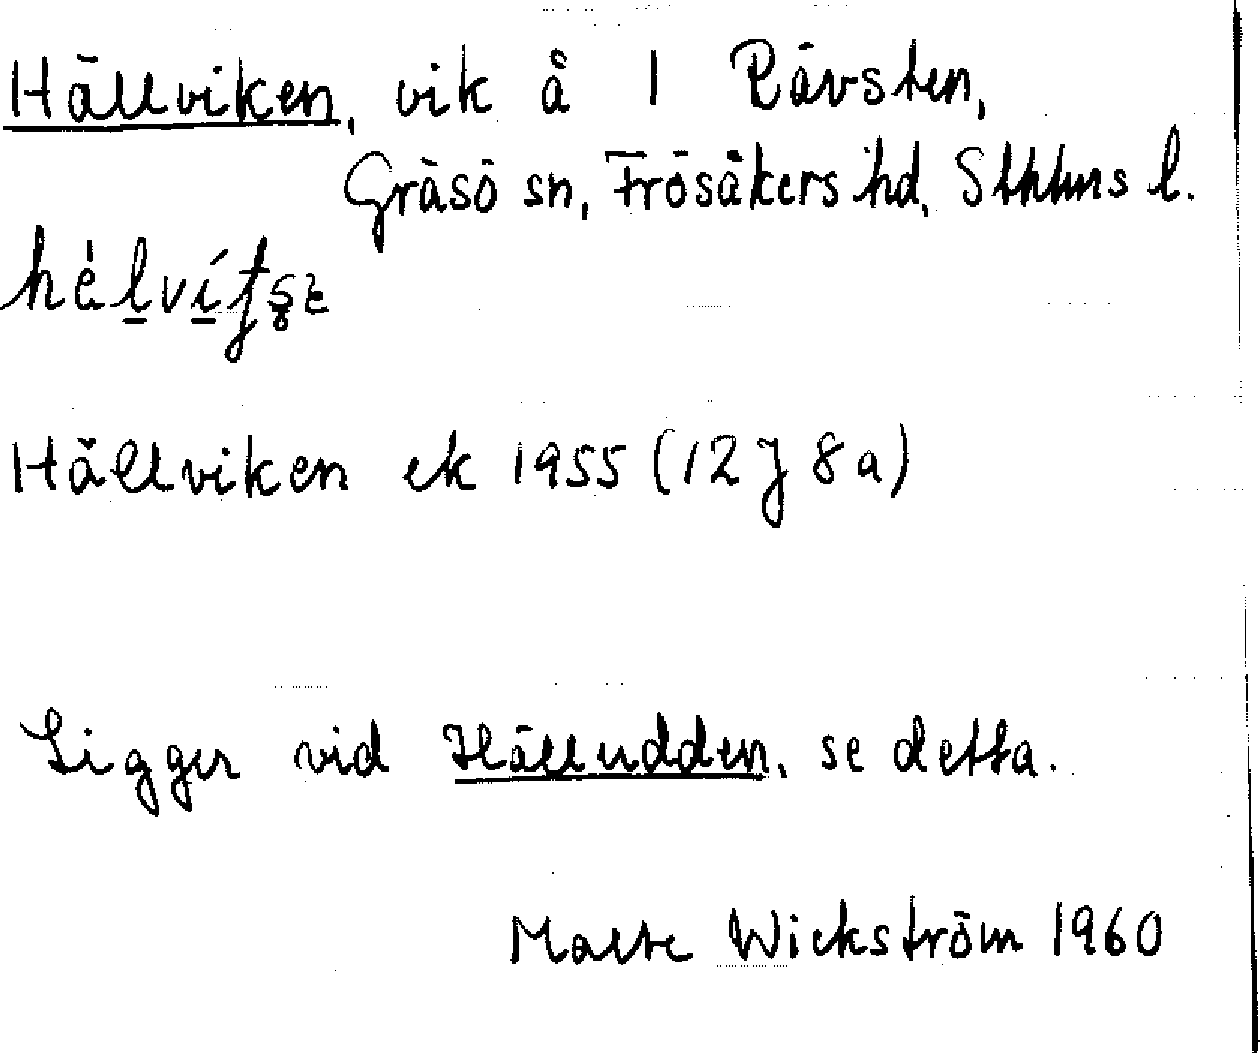 Hällviken, vik å 1 Rävsten,
Gräsö sn, Frösåkers hd, Sthlms l.
Hällviken ek 1955 (12J 8a)
Ligger vid Hälludden, se detta.
Malte Wickström 1960